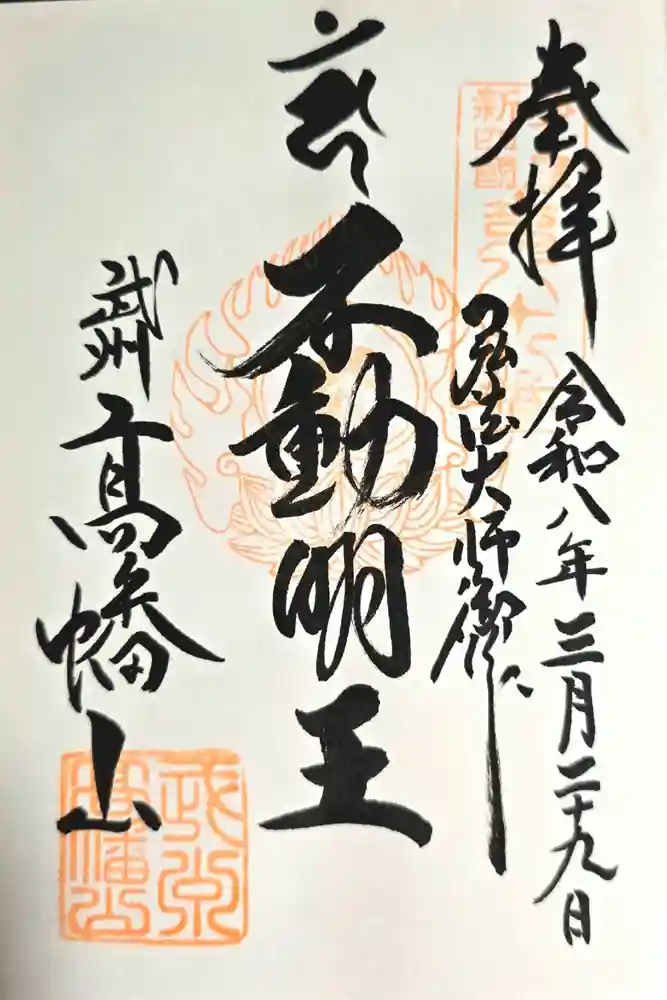 奉拝
令和八年三月二十九日
大師御作
不動明王
武州
高幡山
新四國